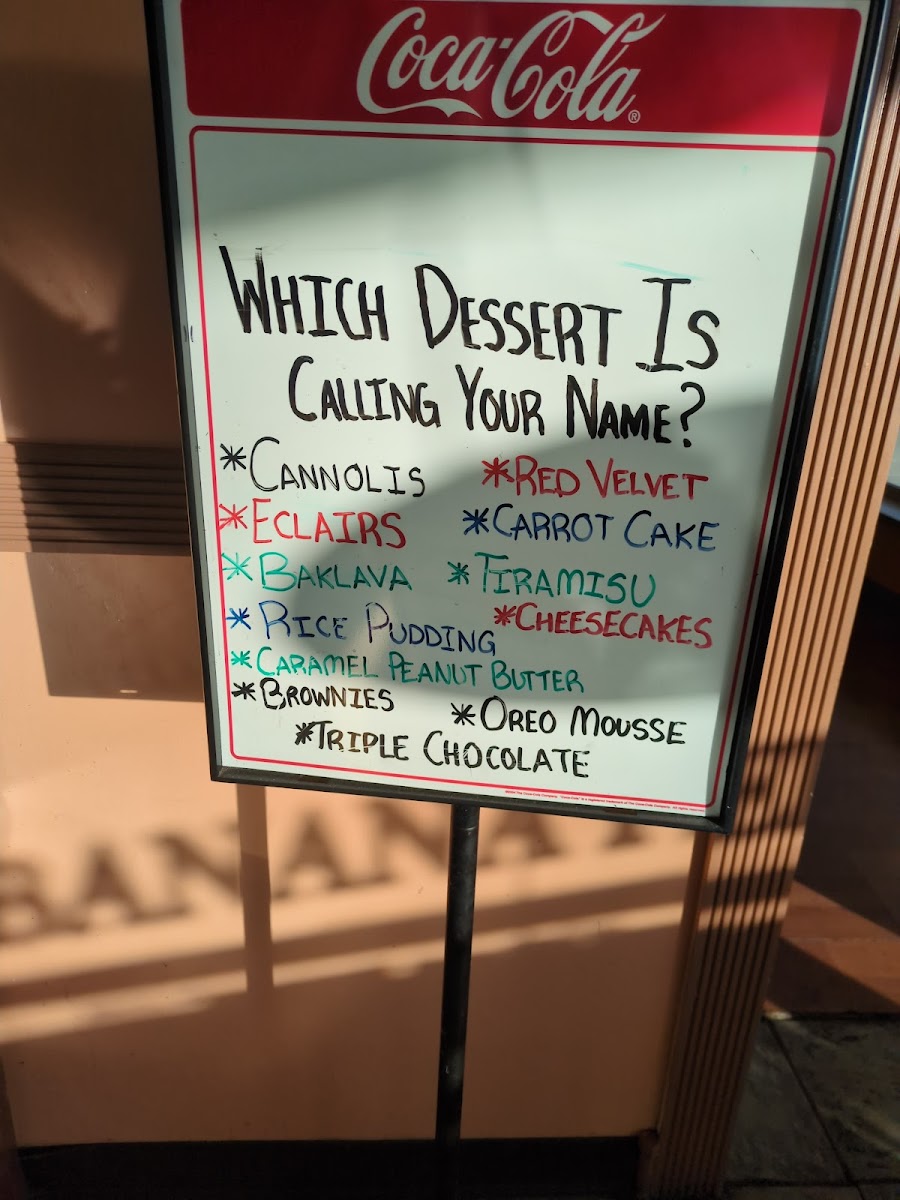 Coca-Cola®
WHICH DESSERT IS
CALLING YOUR NAME?
*CANNOLIS *RED VELVET
*ECLAIRS *CARROT CAKE
*BAKLAVA *TIRAMISU
*RICE PUDDING *CHEESECAKES
*CARAMEL PEANUT BUTTER
*BROWNIES *OREO MOUSSE
*TRIPLE CHOCOLATE
BANANA